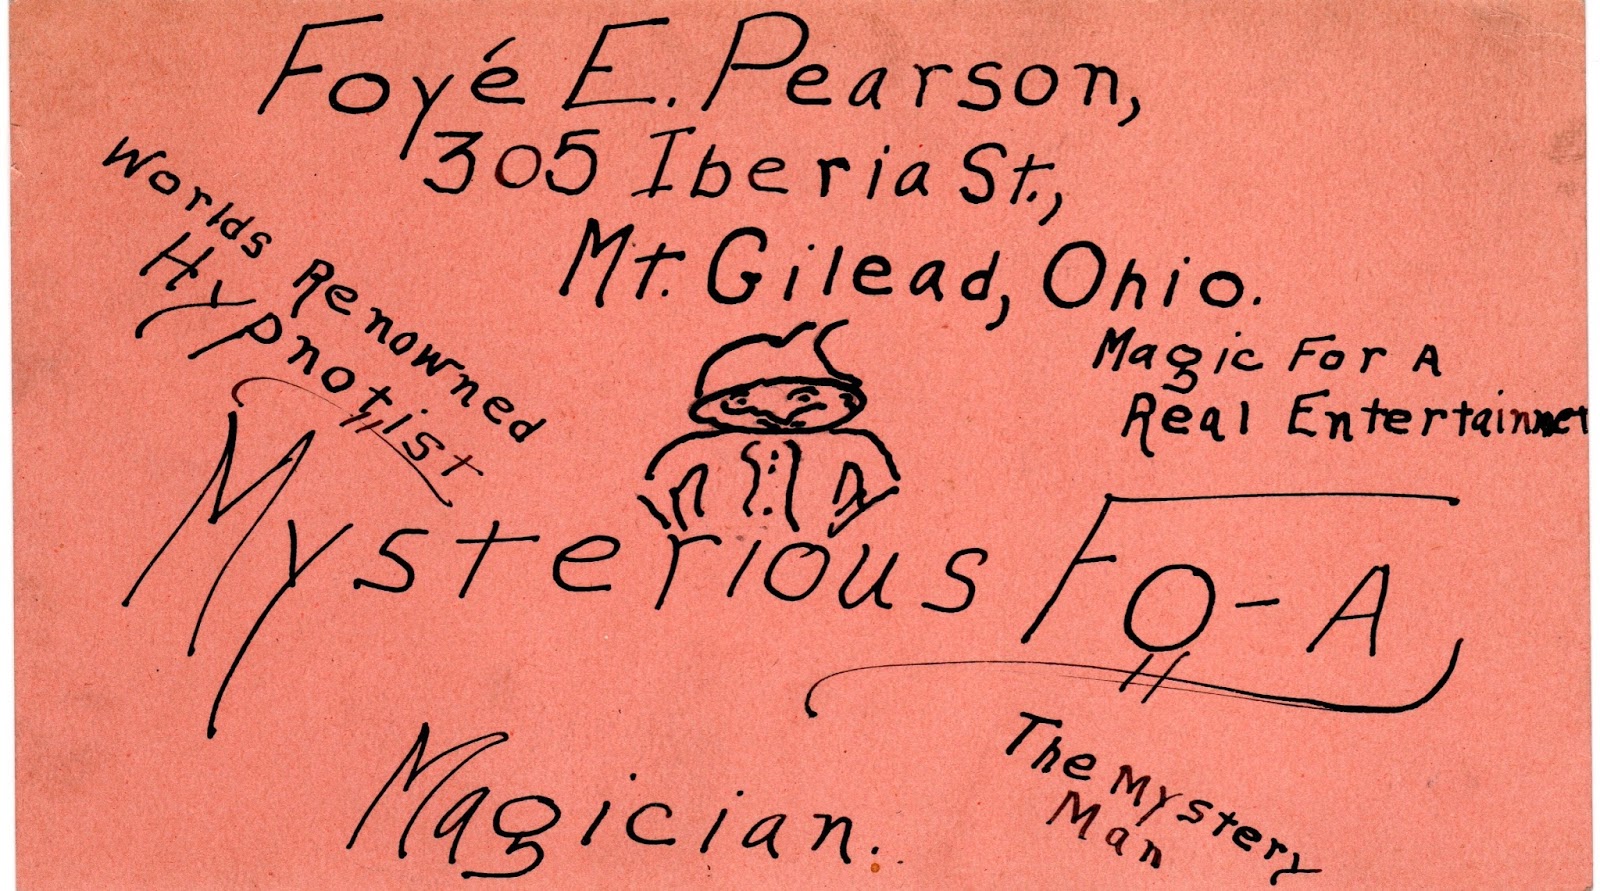 Foyé E. Pearson,
305 Iberia St.,
Mt. Gilead, Ohio.
Worlds Renowned
Hypnotist
Magic For A
Real Entertainmet
Mysterious Fo-A
Magician.
The Mystery
Man